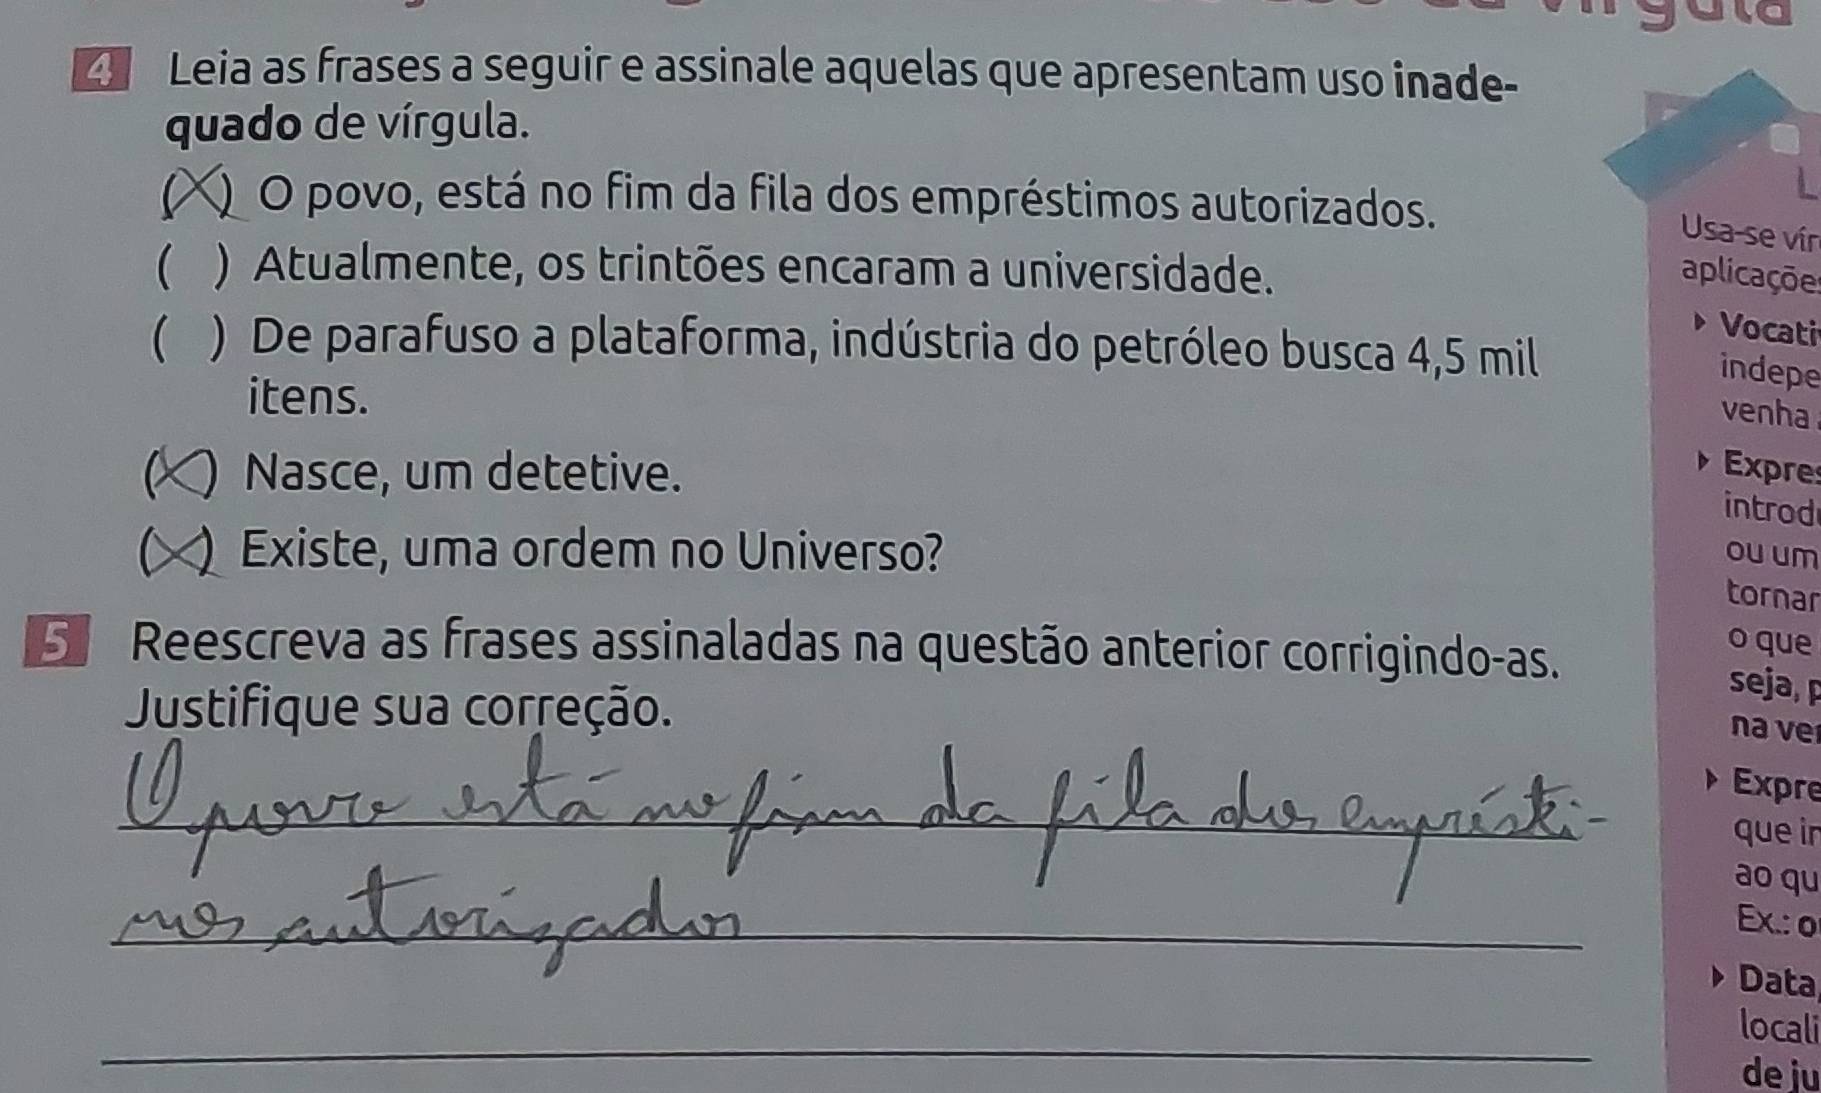 4 Leia as frases a seguir e assinale aquelas que apresentam uso inade-
quado de vírgula.
(X) O povo, está no fim da fila dos empréstimos autorizados.
( ) Atualmente, os trintões encaram a universidade.
( ) De parafuso a plataforma, indústria do petróleo busca 4,5 mil
itens.
(X) Nasce, um detetive.
(X) Existe, uma ordem no Universo?
5 Reescreva as frases assinaladas na questão anterior corrigindo-as.
Justifique sua correção.
O povo está no fim da fila dos emprésti-
mos autorizados
L
Usa-se vír
aplicações
Vocati
indepe
venha
Expres
introd
ou um
tornar
o que
seja, p
na ver
Expre
que in
ao qu
Ex.: o
Data,
locali
de ju